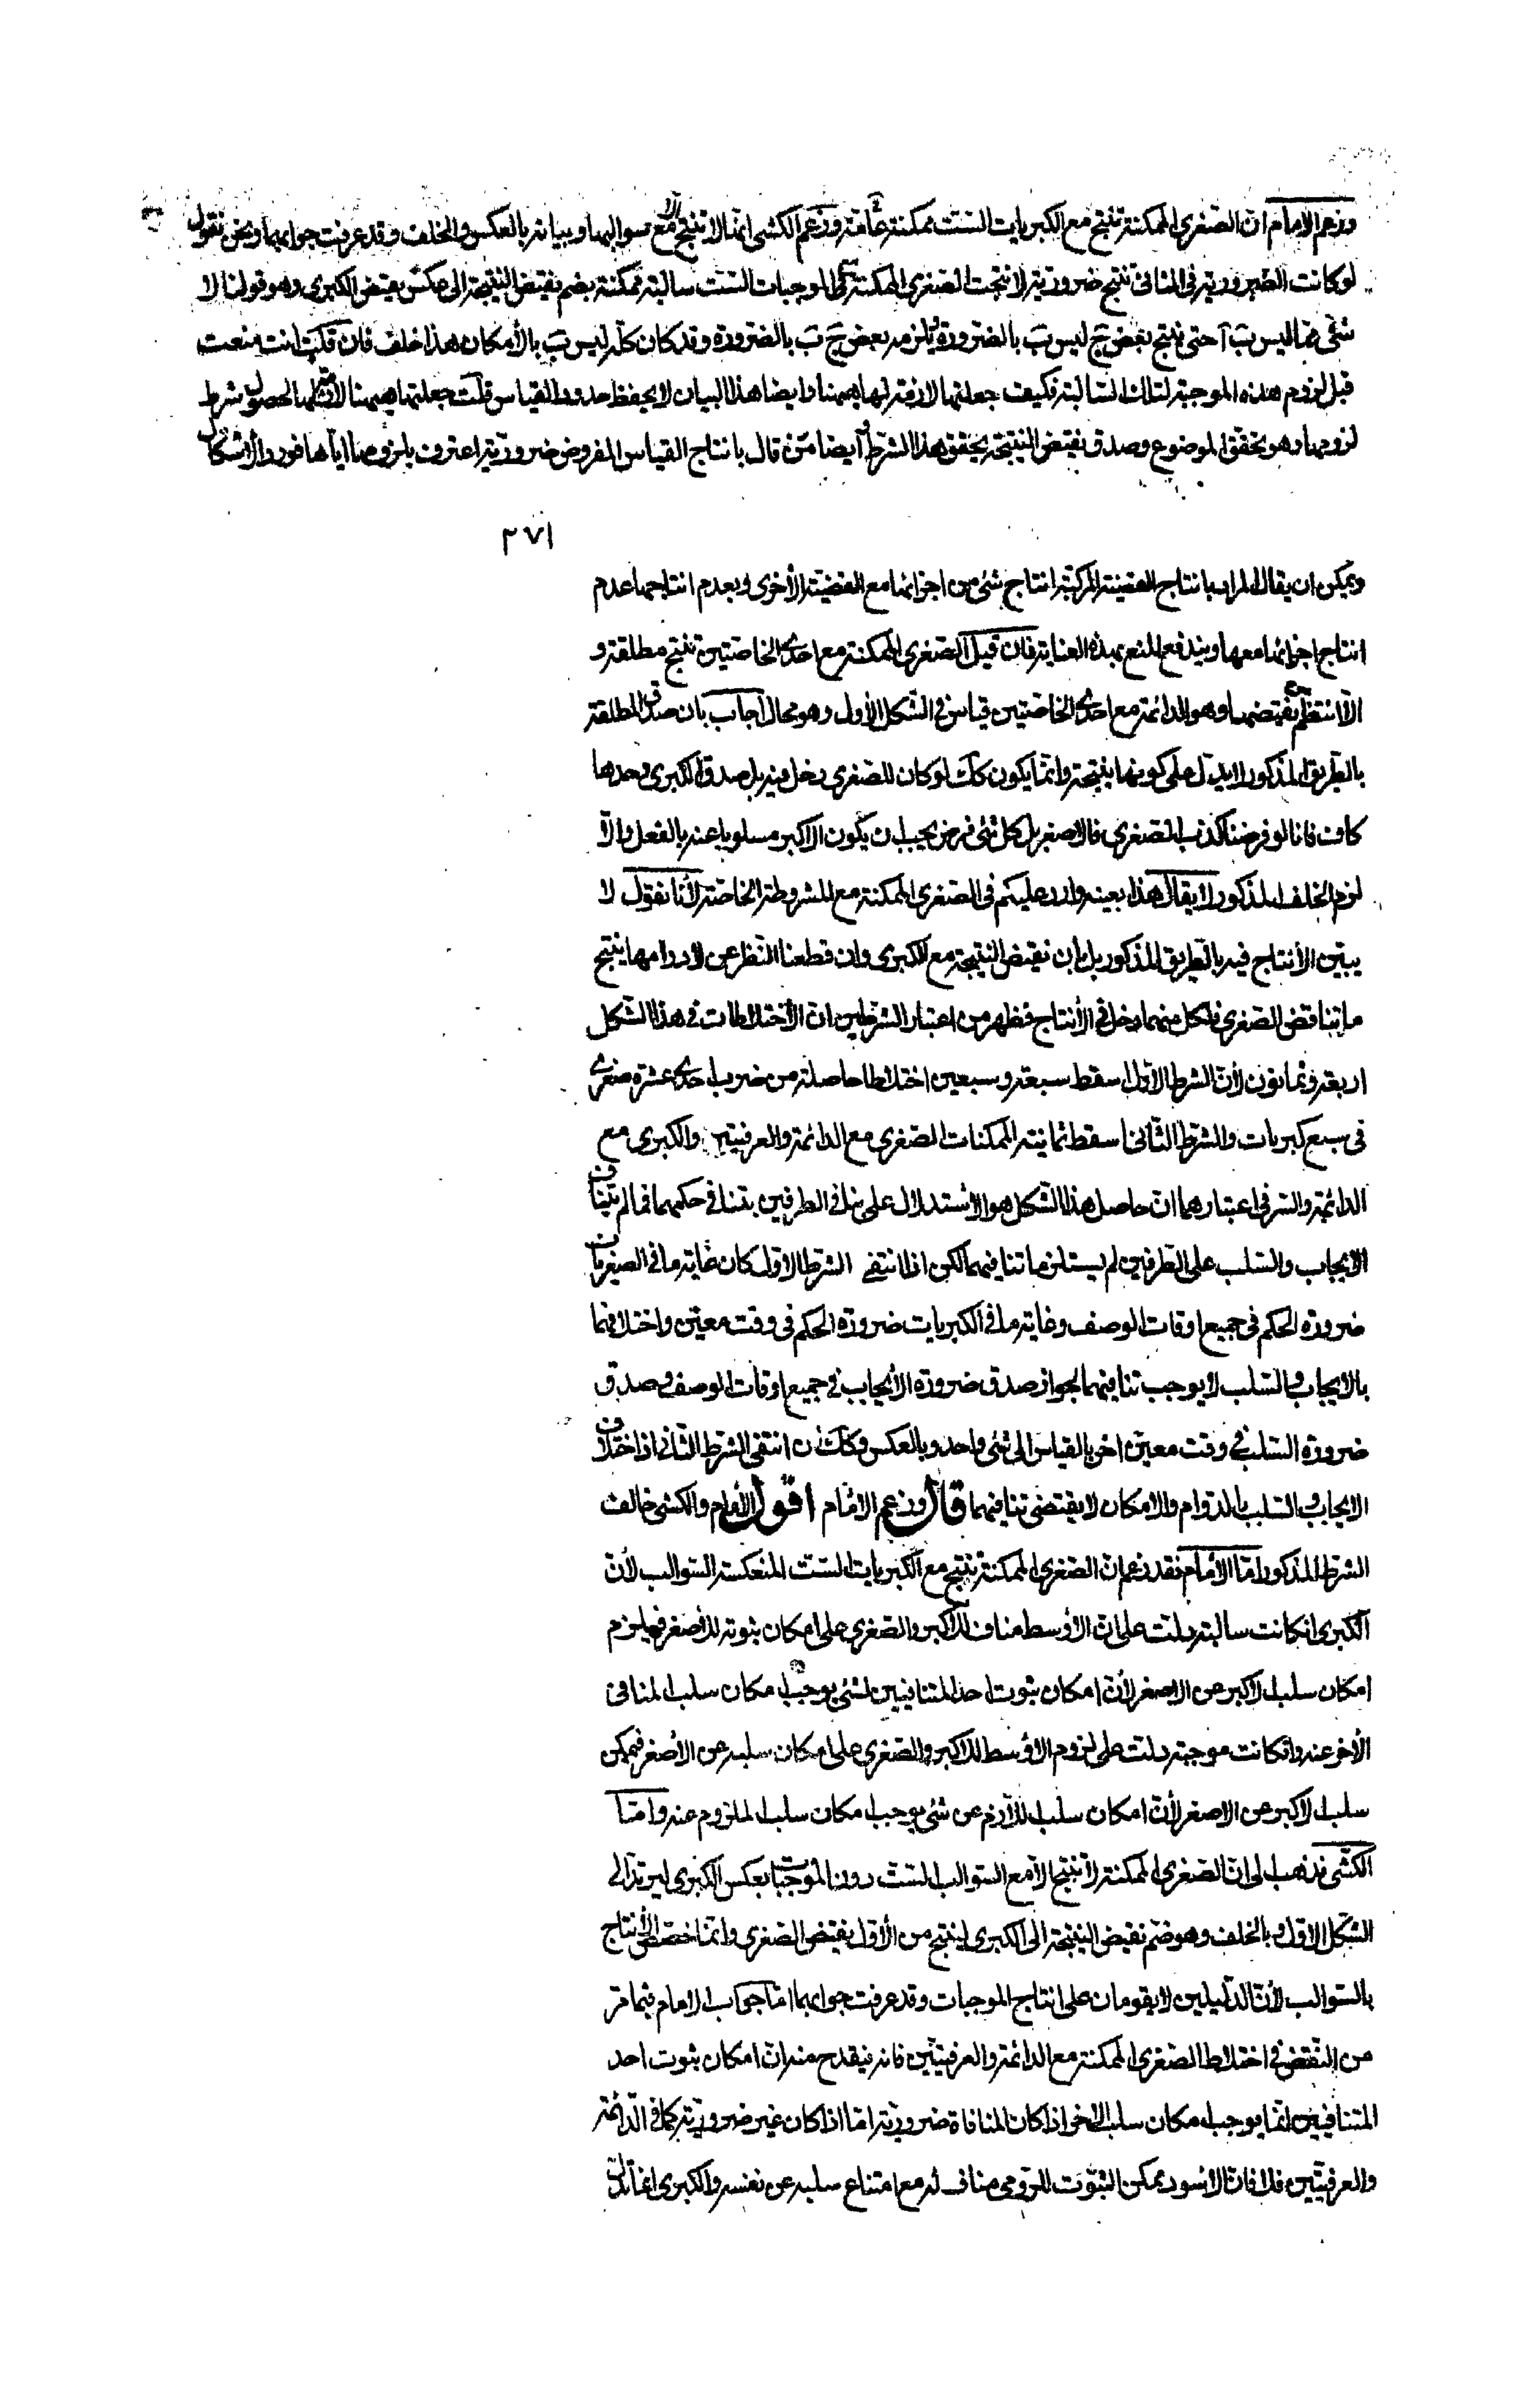 وزعم الامام ان الصغرى الممكنة تنتج مع الكبريات الست ممكنة عامة وزعم الكشى انها لا تنتج الا مع سوالبها وبيانه بالعكس والخلف وقد عرفت جوابهما ونحن نقول
لو كانت الضرورية فى الثانى تنتج ضرورية لانتجت الصغرى الممكنة مع الموجبات الست سالبة ممكنة بضم نقيض النتيجة الى عكس نقيض الكبرى وهو قولنا لا
شئ مما ليس ب آ حتى ينتج بعض ج ليس ب بالضرورة ويلزمه بعض ج ب بالضرورة وقد كان كله ليس ب بالأمكان هذا خلف فان قلت انت منعت
قبل لزوم هذه الموجبة لتلك السالبة فكيف جعلتها لازمة لها ههنا وايضا هذا البيان لا يحفظ حدود القياس قلت جعلتها ههنا لازمة لها لحصول شرط
لزومها وهو تحقق الموضوع وصدق نقيض النتيجة يحقق هذا الشرط وايضا من قال بانتاج القياس المفروض ضرورية اعترف بلزومها اياها فورد الأشكال
٢٧١
ويمكن ان يقال المراد بانتاج القضية المركبة انتاج شئ من اجزائها مع القضية الأخرى وبعدم انتاجها عدم
انتاج اجزائها معها ويندفع المنع بهذه العناية فان قيل الصغرى الممكنة مع احدى الخاصتين تنتج مطلقة و
الا انتظم نقيضها وهو الدائمة مع احدى الخاصتين قياس فى الشكل الأول وهو محال اجاب بان صدق المطلقة
بالطريق المذكور لا يدل على كونها نتيجة وانما يكون كك لو كان للصغرى دخل فيه بل صدق الكبرى وحدها
كاف فانا لو فرضنا كذب الصغرى فالاصغر بل كل شئ فرض يجب ان يكون الاكبر مسلوبا عنه بالفعل والا
لزم الخلف المذكور لا يقال هذا بعينه وارد عليكم فى الصغرى الممكنة مع المشروطة الخاصة لأنا نقول لا
يبين الأنتاج فيه بالطريق المذكور بل بان نقيض النتيجة مع الكبرى وان قطعنا النظر عن لادوامها ينتج
ما يناقض الصغرى فلكل منهما دخل فى الأنتاج فظهر من اعتبار الشرطين ان الأختلاطات فى هذا الشكل
اربعة وثمانون لأن الشرط الاول اسقط سبعة وسبعين اختلاطا حاصلة من ضرب احدى عشرة صغرى
فى سبع كبريات والشرط الثانى اسقط ثمانية الممكنات الصغرى مع الدائمة والعرفيتين والكبرى مع
الدائمة والسر فى اعتبارهما ان حاصل هذا الشكل هو الأستدلال على تنافى الطرفين بتنافى حكمهما فما لم يتناف
الأيجاب والسلب على الطرفين لم يستلزما تنافيهما لكن اذا انتفى الشرط الاول كان غاية ما فى الصغريات
ضرورة الحكم فى جميع اوقات الوصف وغاية ما فى الكبريات ضرورة الحكم فى وقت معين واختلافهما
بالأيجاب والسلب لا يوجب تنافيهما لجواز صدق ضرورة الأيجاب فى جميع اوقات الوصف وصدق
ضرورة السلب فى وقت معين اخر بالقياس الى شئ واحد وبالعكس وكك ان انتفى الشرط الثانى اذ اختلاف
الايجاب والسلب بالدوام والامكان لا يقتضى تنافيهما قال وزعم الامام اقول الأمام والكشى خالفا
الشرط المذكور اما الأمام فقد زعم ان الصغرى الممكنة تنتج مع الكبريات الست المنعكسة السوالب لأن
الكبرى ان كانت سالبة دلت على ان الأوسط مناف للأكبر والصغرى على امكان ثبوته للأصغر فيلزم
امكان سلب الاكبر عن الاصغر لأن امكان ثبوت احد المتنافيين لشئ يوجب امكان سلب المنافى
الأخر عنه وان كانت موجبة دلت على لزوم الأوسط للأكبر والصغرى على امكان سلبه عن الأصغر فيمكن
سلب الاكبر عن الاصغر لأن امكان سلب اللازم عن شئ يوجب امكان سلب الملزوم عنه واما
الكشى فذهب الى ان الصغرى الممكنة لا تنتج الا مع السوالب الست دون الموجبات بعكس الكبرى ليرتد الى
الشكل الاول وبالخلف وهو ضم نقيض النتيجة الى الكبرى لينتج من الأول نقيض الصغرى وانما خصص الأنتاج
بالسوالب لأن الدليلين لا يقومان على انتاج الموجبات وقد عرفت جوابهما اما جواب الامام فبما مر
من النقض فى اختلاط الصغرى الممكنة مع الدائمة والعرفيتين فانه ينقدح منه ان امكان ثبوت احد
المتنافيين انما يوجب امكان سلب الاخر اذا كان المنافاة ضرورية اما اذا كان غير ضرورية كما فى الدائمة
والعرفيتين فلا فان الأسود ممكن الثبوت للرومى مناف له مع امتناع سلبه عن نفسه والكبرى انما تدل